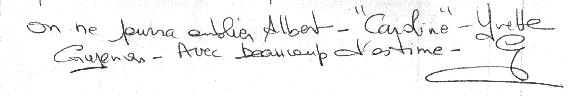 on ne pourra oublier Albert - "Caroline" - Yvette
- Avec beaucoup d'estime -